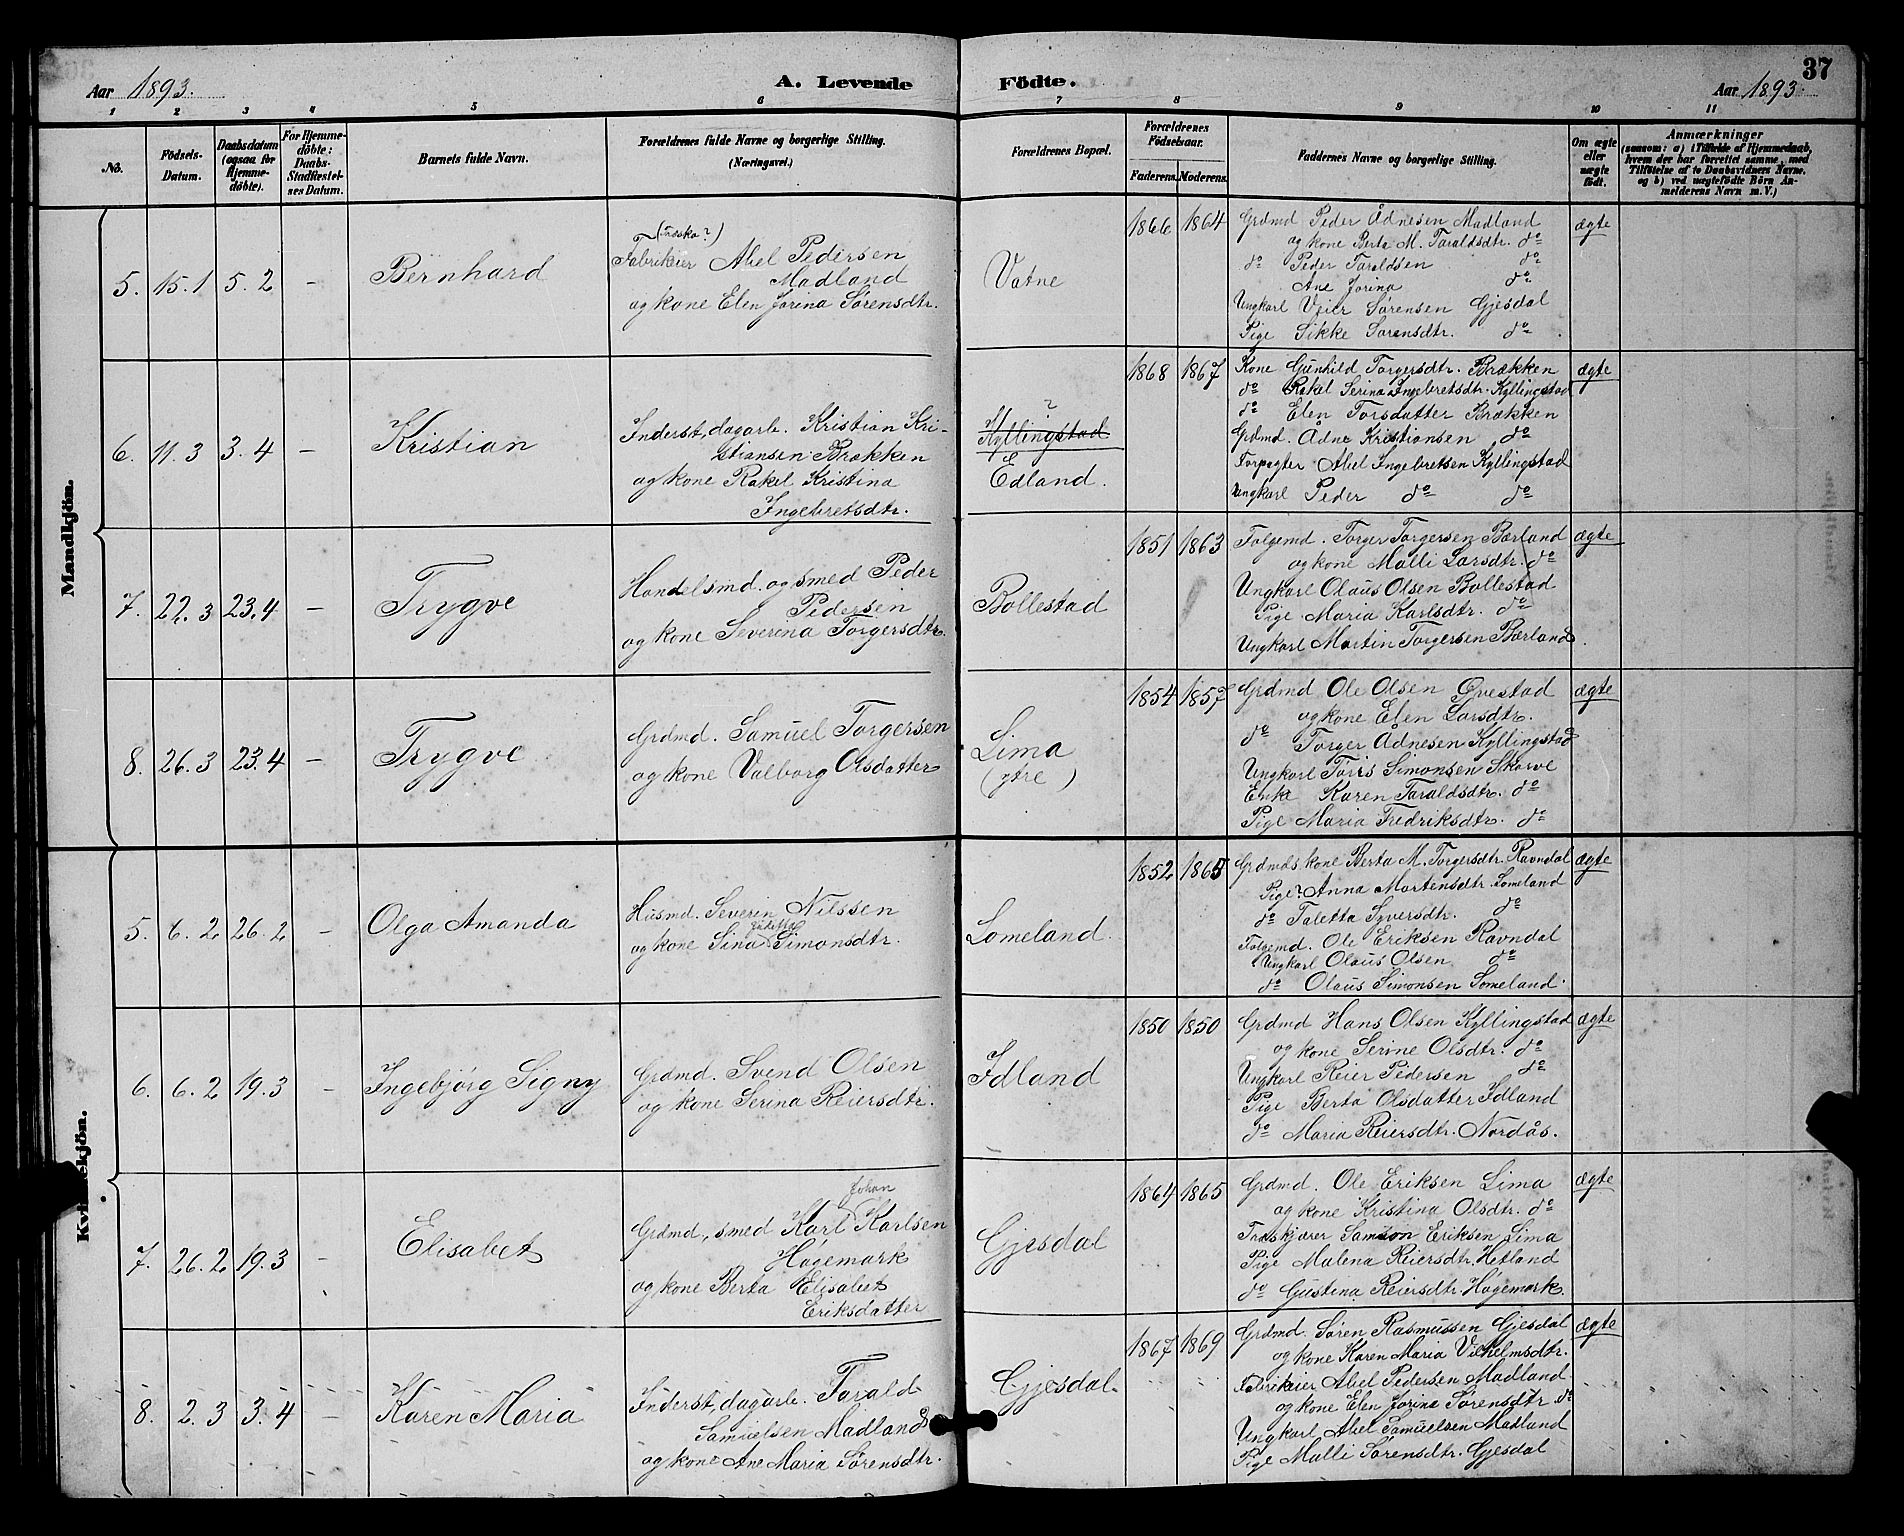 37
Aar 1893.
A. Levende Födte.
Aar 1893.
1 2 3 4 5 6 7 8 9 10 11
No.
Födsels-
Datum.
Daabsdatum
(ogsaa for
Hjemme-
döbte).
For Hjemme-
döbte:
Daabs-
Stadfæstel-
ses Datum.
Barnets fulde Navn.
Forældrenes fulde Navne og borgerlige Stilling.
(Næringsvei.)
Forældrenes Bopæl.
Forældrenes
Födselsaar.
Faderens. Moderens.
Faddernes Navne og borgerlige Stilling.
Om ægte
eller
uægte
födt.
Anmærkninger
(saasom: a) i Tilfælde af Hjemmedaab,
hvem der har forrettet samme, med
Tilföielse af to Daabsvidners Navne,
og b) ved uægtefödte Börn An-
melderens Navn m. V.)
Mandkjön.
5. 15.1 5.2 - Bernhard
Fabrikeier Abel Pedersen
Madland
og kone Elen Jorina Sörensdtr.
Vatne
1866 1864
Grdmd Peder Ådnesen Madland
og kone Berta M. Taraldsdtr. do
do Peder Taraldsen do
Ane Jorina do
Ungkarl Veier Sörensen Gjesdal
Pige Sikke Sörensdtr. do
ægte
6. 11.3 3.4 - Kristian
Inderst, dagarb. Kristian Kri-
stiansen Brækken
og kone Rakel Kristina
Ingebretsdtr.
?
Kyllingstad
Edland.
1868 1867
Kone Gunhild Torgersdtr. Brækken
do Rakel Serina Ingebretsdtr. Kyllingstad
do Elen Torsdatter Brækken
Grdmd. Ådne Kristiansen do
Forpagter Abel Ingebretsen Kyllingstad
Ungkarl Peder do do
ægte
7. 22.3 23.4 - Trygve
Handelsmd. og smed Peder
Pedersen
og kone Severina Torgersdtr.
Bollestad
1851 1863
Folgemd. Torger Torgersen Bærland
og kone Malli Larsdtr. do
Ungkarl Olaus Olsen Bollestad
Pige Maria Karlsdtr. do
Ungkarl Martin Torgersen Bærland.
ægte
8. 26.3 23.4 - Trygve
Grdmd. Samuel Torgersen
og kone Valborg Olsdatter
Lima
(ytre)
1854 1857
Grdmd Ole Olsen Øvestad
og kone Elen Larsdtr.
do Torger Ådnesen Kyllingstad
Ungkarl Tøris Simonsen Skarve
Enke Karen Taraldsdtr. do
Pige Maria Fredriksdtr. do
ægte
Kvindekjön.
5. 6.2 26.2 - Olga Amanda
Husmd. Severin Nilssen
og kone Sina Simonsdtr.
Lomeland.
1852 1865
Grdmds kone Berta M. Torgersdtr. Ravndal
Pige? Anna Martensdtr. Lomeland
do Taletta Syversdtr. do
Folgemd. Ole Eriksen Ravndal
Ungkarl Olaus Olsen do
do Olaus Simonsen Lomeland.
ægte
6. 6.2 19.3 - Ingebjörg Signy
Grdmd. Svend Olsen
og kone Serina Reiersdtr.
Idland
1850 1850
Grdmd Hans Olsen Kyllingstad
og kone Serine Olsdtr. do
Ungkarl Reier Pedersen do
Pige Berta Olsdatter Idland
do Maria Reiersdtr. Nordås.
ægte
7. 26.2 19.3 - Elisabet
Johan
Grdmd, smed Karl Karlsen
Högemark
og kone Berta Elisabet
Eriksdatter
Gjesdal
1864 1865
Grdmd. Ole Eriksen Lima
og kone Kristina Olsdtr. do
Træskjærer Samson Eriksen Lima
Pige Malena Reiersdtr. Hetland
do Gustina Reiersdtr. Högemark
ægte
8. 2.3 3.4 - Karen Maria
Inderst, dagarb. Tarald
Samuelsen Madland
og kone Ane Maria Sörensdtr.
Gjesdal.
1867 1869
Grdmd. Sören Rasmussen Gjesdal
og kone Karen Maria Vilhelmsdtr.
Fabrikeier Abel Pedersen Madland
og kone Elen Jorine Sörensdtr do
Ungkarl Abel Samuelsen Madland
Pige Malli Sörensdtr. Gjesdal
ægte